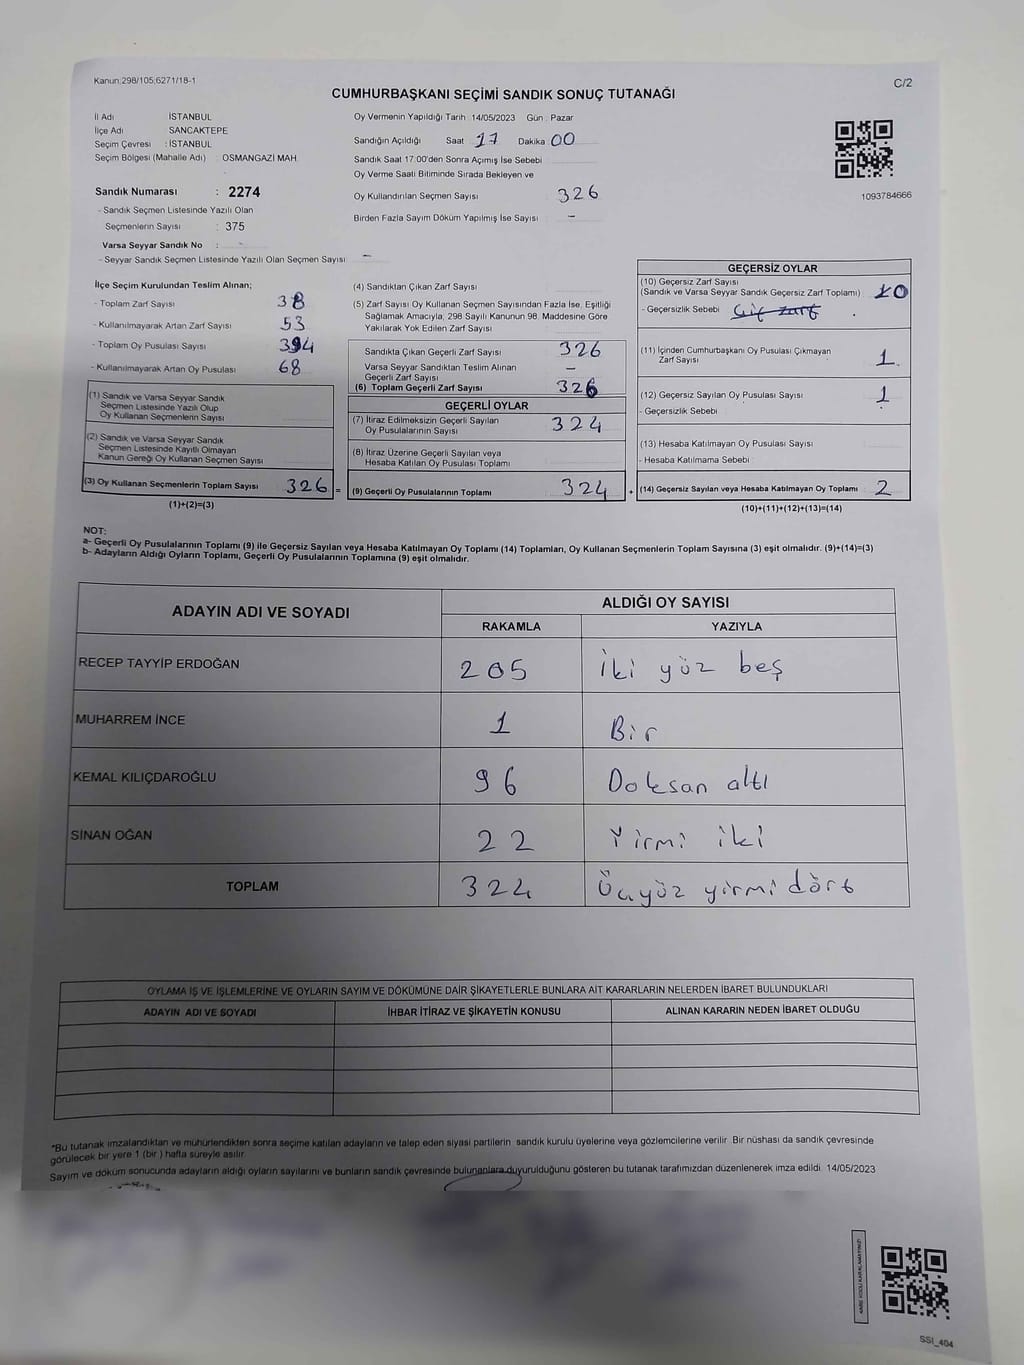 Kanun:298/105;6271/18-1
C/2
CUMHURBAŞKANI SEÇİMİ SANDIK SONUÇ TUTANAĞI
İl Adı İSTANBUL
İlçe Adı SANCAKTEPE
Seçim Çevresi : İSTANBUL
Seçim Bölgesi (Mahalle Adı) : OSMANGAZİ MAH.
Sandık Numarası : 2274
- Sandık Seçmen Listesinde Yazılı Olan
Seçmenlerin Sayısı : 375
Varsa Seyyar Sandık No : -
- Seyyar Sandık Seçmen Listesinde Yazılı Olan Seçmen Sayısı -
Oy Vermenin Yapıldığı Tarih 14/05/2023 Gün : Pazar
Sandığın Açıldığı Saat 17 Dakika 00
Sandık Saat 17:00'den Sonra Açımış İse Sebebi
Oy Verme Saati Bitiminde Sırada Bekleyen ve
Oy Kullandırılan Seçmen Sayısı 326
Birden Fazla Sayım Döküm Yapılmış İse Sayısı -
1093784666
İlçe Seçim Kurulundan Teslim Alınan;
- Toplam Zarf Sayısı
- Kullanılmayarak Artan Zarf Sayısı 53
- Toplam Oy Pusulası Sayısı 394
- Kullanılmayarak Artan Oy Pusulası 68
(1) Sandık ve Varsa Seyyar Sandık
Seçmen Listesinde Yazılı Olup
Oy Kullanan Seçmenlerin Sayısı
(2) Sandık ve Varsa Seyyar Sandık
Seçmen Listesinde Kayıtlı Olmayan
Kanun Gereği Oy Kullanan Seçmen Sayısı
(3) Oy Kullanan Seçmenlerin Toplam Sayısı 326 =
(1)+(2)=(3)
(4) Sandıktan Çıkan Zarf Sayısı
(5) Zarf Sayısı Oy Kullanan Seçmen Sayısından Fazla İse, Eşitliği
Sağlamak Amacıyla, 298 Sayılı Kanunun 98. Maddesine Göre
Yakılarak Yok Edilen Zarf Sayısı
Sandıkta Çıkan Geçerli Zarf Sayısı 326
Varsa Seyyar Sandıktan Teslim Alınan
Geçerli Zarf Sayısı -
(6) Toplam Geçerli Zarf Sayısı 326
GEÇERLİ OYLAR
(7) İtiraz Edilmeksizin Geçerli Sayılan
Oy Pusulalarının Sayısı 324
(8) İtiraz Üzerine Geçerli Sayılan veya
Hesaba Katılan Oy Pusulası Toplamı
(9) Geçerli Oy Pusulalarının Toplamı 324 +
GEÇERSİZ OYLAR
(10) Geçersiz Zarf Sayısı
(Sandık ve Varsa Seyyar Sandık Geçersiz Zarf Toplamı) 0
- Geçersizlik Sebebi
(11) İçinden Cumhurbaşkanı Oy Pusulası Çıkmayan
Zarf Sayısı 1
(12) Geçersiz Sayılan Oy Pusulası Sayısı 1
- Geçersizlik Sebebi :
(13) Hesaba Katılmayan Oy Pusulası Sayısı
- Hesaba Katılmama Sebebi
(14) Geçersiz Sayılan veya Hesaba Katılmayan Oy Toplamı 2
(10)+(11)+(12)+(13)=(14)
NOT:
a- Geçerli Oy Pusulalarının Toplamı (9) ile Geçersiz Sayılan veya Hesaba Katılmayan Oy Toplamı (14) Toplamları, Oy Kullanan Seçmenlerin Toplam Sayısına (3) eşit olmalıdır. (9)+(14)=(3)
b- Adayların Aldığı Oyların Toplamı, Geçerli Oy Pusulalarının Toplamına (9) eşit olmalıdır.
ADAYIN ADI VE SOYADI ALDIĞI OY SAYISI
RAKAMLA YAZIYLA
RECEP TAYYİP ERDOĞAN 205 İki yüz beş
MUHARREM İNCE 1 Bir
KEMAL KILIÇDAROĞLU 96 Doksan altı
SİNAN OĞAN 22 Yirmi iki
TOPLAM 324 Üçyüz yirmi dört
OYLAMA İŞ VE İŞLEMLERİNE VE OYLARIN SAYIM VE DÖKÜMÜNE DAİR ŞİKAYETLERLE BUNLARA AİT KARARLARIN NELERDEN İBARET BULUNDUKLARI
ADAYIN ADI VE SOYADI İHBAR İTİRAZ VE ŞİKAYETİN KONUSU ALINAN KARARIN NEDEN İBARET OLDUĞU
*Bu tutanak imzalandıktan ve mühürlendikten sonra seçime katılan adayların ve talep eden siyasi partilerin sandık kurulu üyelerine veya gözlemcilerine verilir. Bir nüshası da sandık çevresinde
görülecek bir yere 1 (bir ) hafta süreyle asılır.
Sayım ve döküm sonucunda adayların aldığı oyların sayılarını ve bunların sandık çevresinde bulunanlara duyurulduğunu gösteren bu tutanak tarafımızdan düzenlenerek imza edildi. 14/05/2023
SSI_404